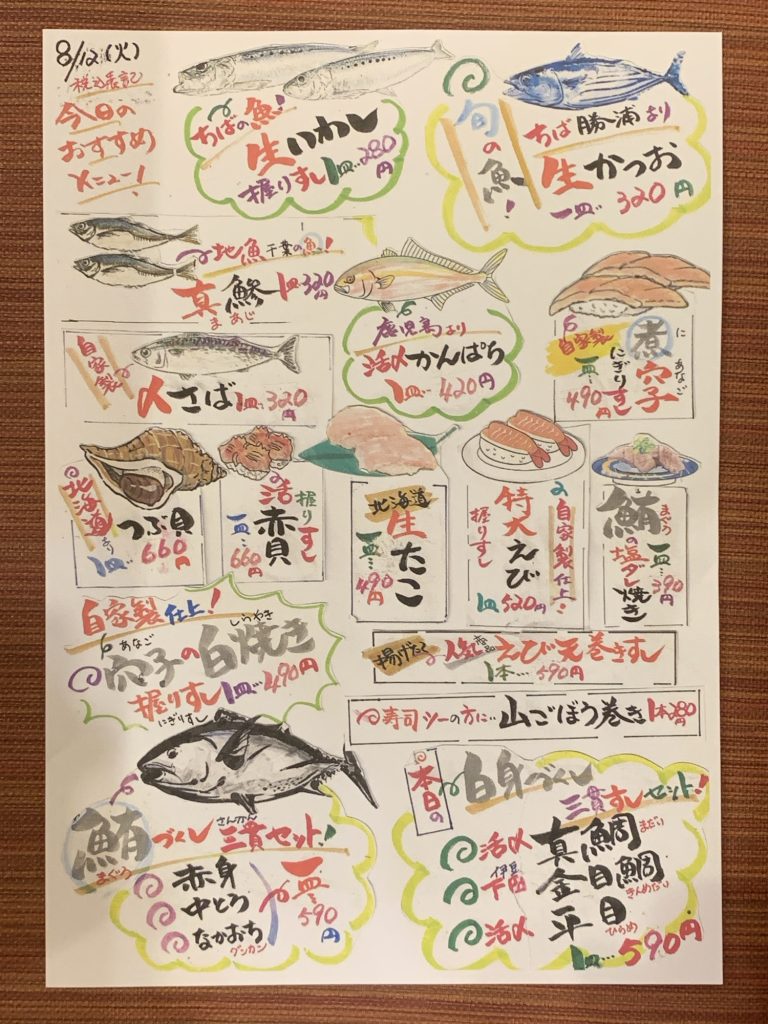 8/12(火)
税込表記
今日の
おすすめ
メニュー!
ちばの魚!
生いわし
握りすし1皿…280円
旬の魚!
ちば勝浦より
生かつお
一皿…320円
地魚 千葉の魚!
真鯵 1皿…320円
まあじ
自家製
〆さば 1皿…320円
鹿児島より
活〆かんぱち
1皿…420円
自家製
煮穴子
に あなご
にぎりすし
一皿…490円
北海道より
つぶ貝
1皿…660円
活赤貝
握りすし
一皿…660円
北海道
生たこ
一皿…490円
自家製仕上!
特大えび
握りすし
1皿520円
鮪の塩ダレ焼き
まぐろ
一皿…390円
自家製仕上!
あなご しらやき
穴子の白焼き
握りすし1皿…490円
にぎりすし
揚げたて
人気商品 えび天巻きすし
1本…590円
寿司ツーの方に…山ごぼう巻き 1本280円
さんかん
鮪づくし三貫セット!
まぐろ
赤身
中とろ
なかおち
グンカン
一皿…590円
本日の
白身づくし
三貫すしセット!
活〆 真鯛 まだい
伊豆
下田 金目鯛 きんめだい
活〆 平目 ひらめ
1皿…590円